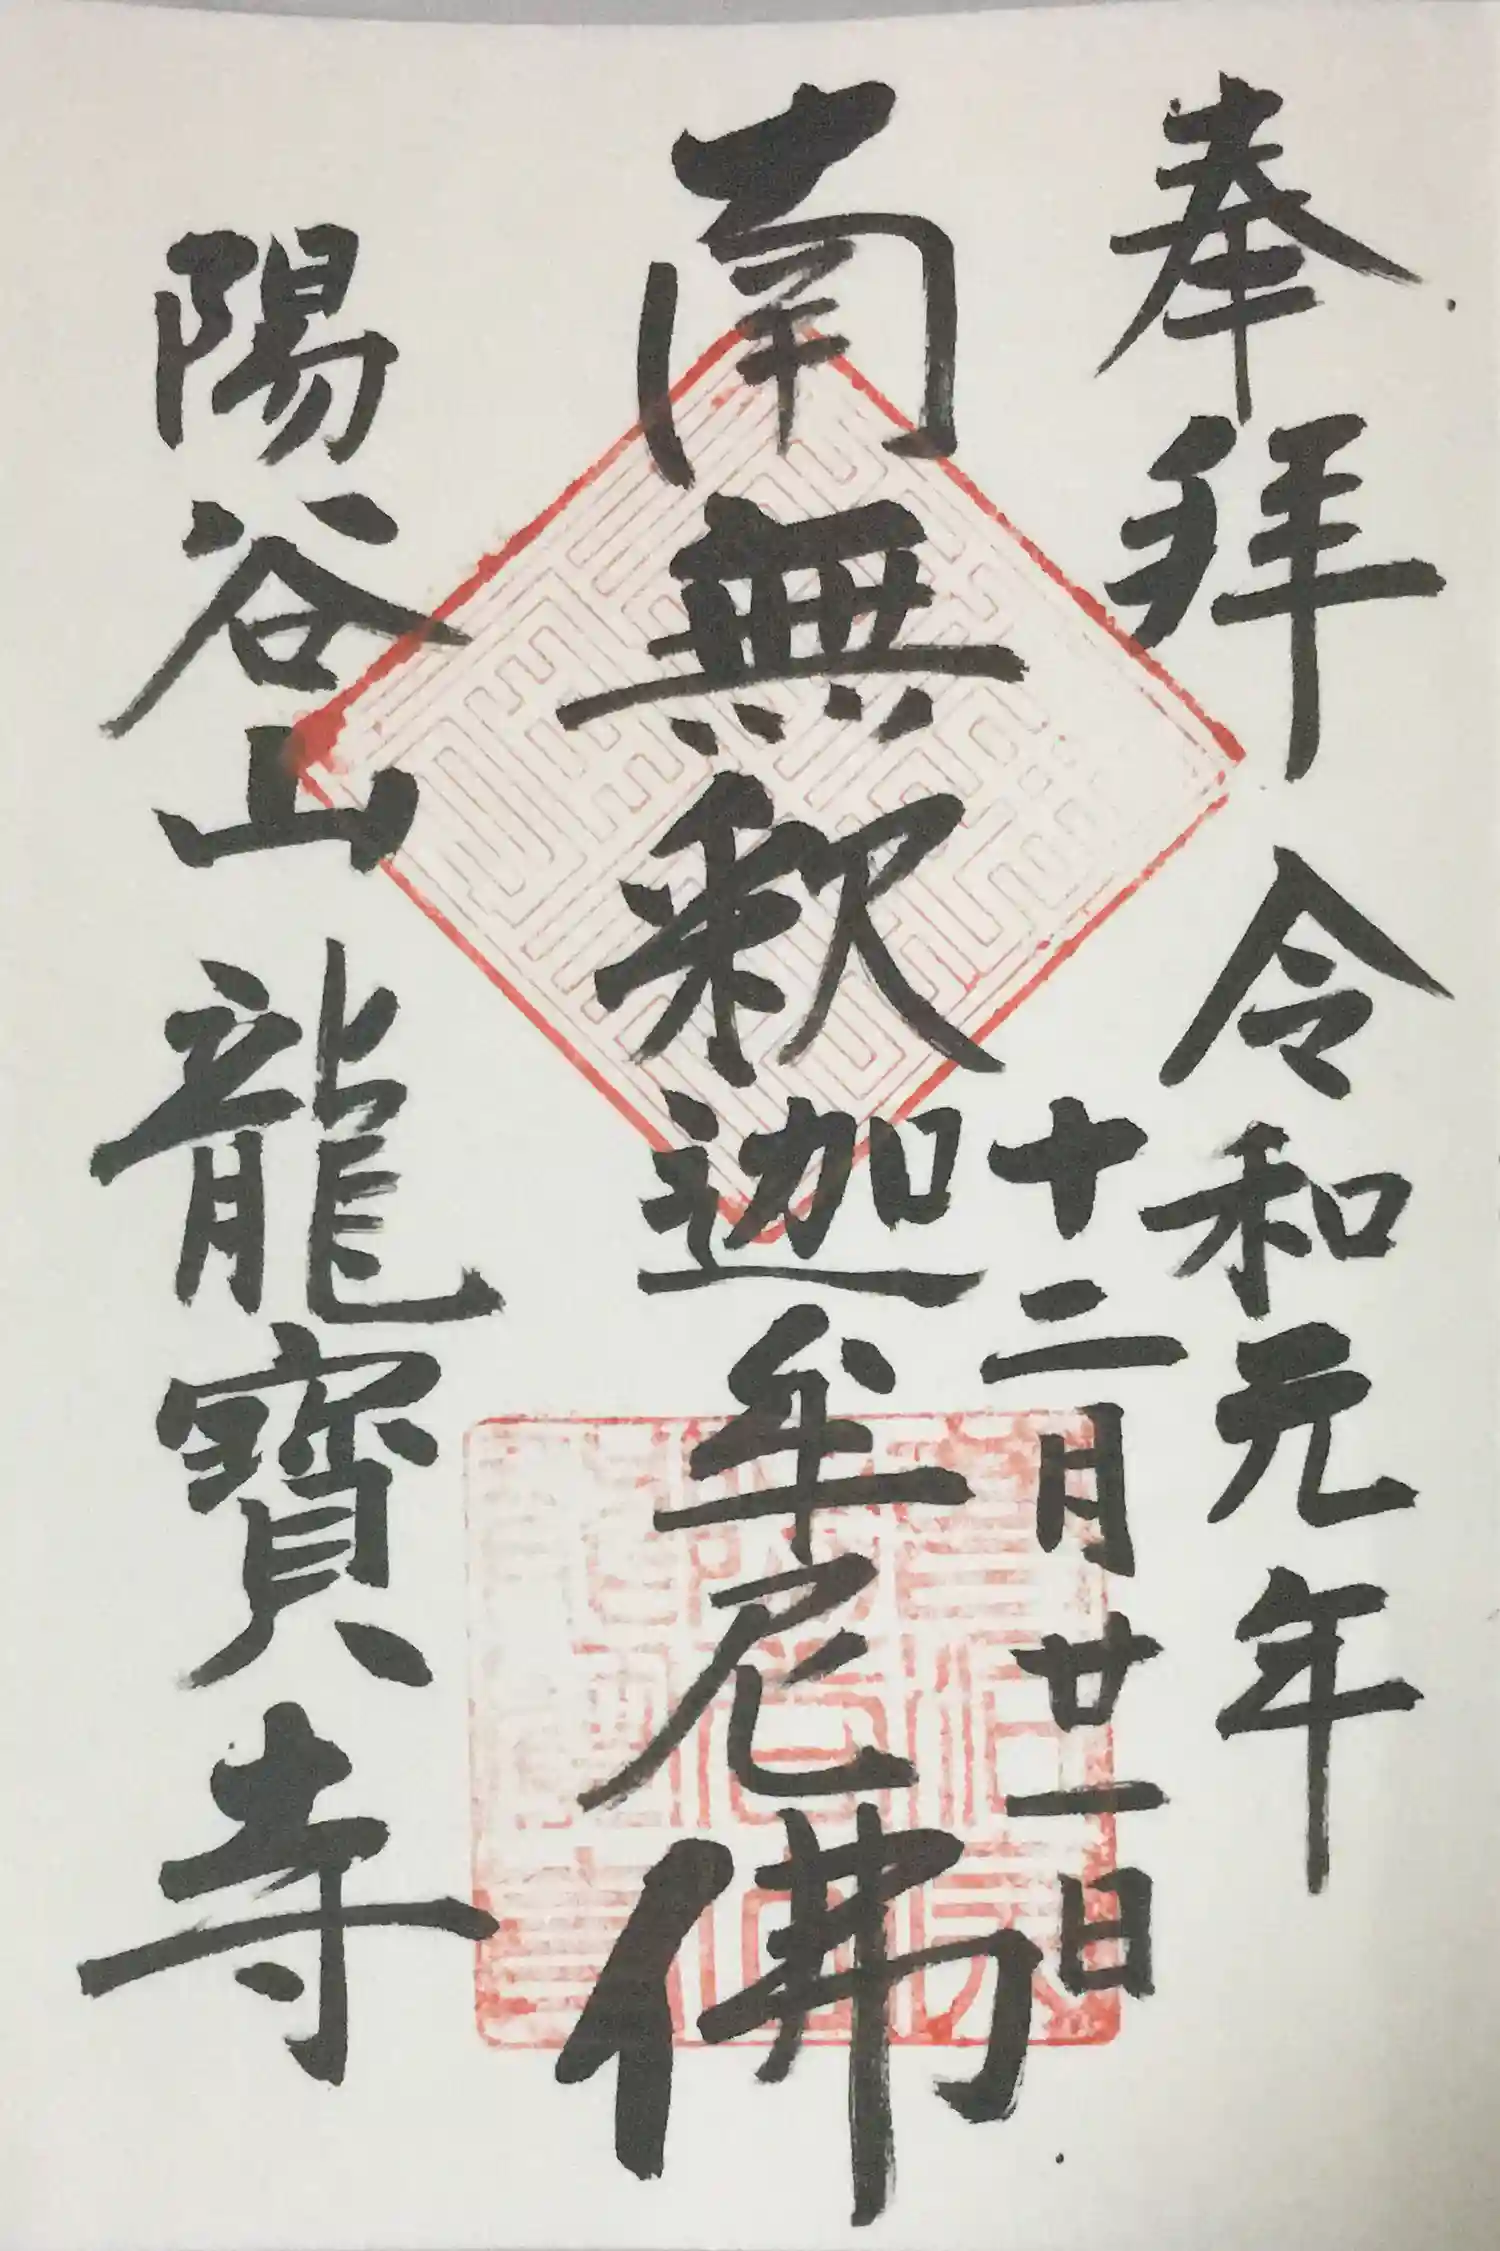 奉拜 令和元年
十二月廿一日
南無釈迦牟尼佛
陽谷山 龍寶寺